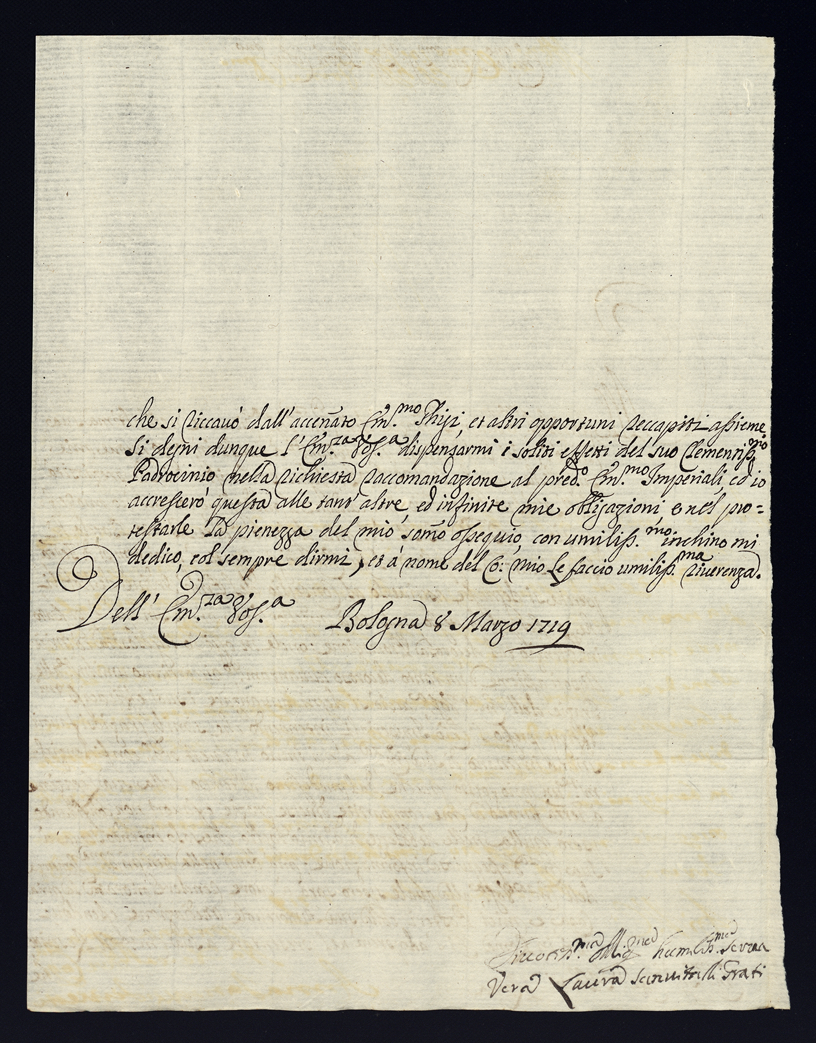 che si riccavò dall'accenato Em.mo et altri opportuni reccapiti assieme
si degni dunque l'Em.za Vos.a dispensarmi i soliti effetti del suo Clementiss.mo
Padrocinio nella richiesta raccomandazione al pred.o Em.mo Imperiali, ed io
accrescerò questa alle tant'altre ed infinite mie obligazioni e nel pro=
testarle la pienezza del mio ossequio, con umiliss.mo inchino mi
dedico, col sempre dirmi, et à nome del Co: mio le faccio umiliss.ma riverenza.
Dell' Em.za Vos.a Bologna 8 Marzo 1719
humiliss.ma Serva
Vera Laura Grati